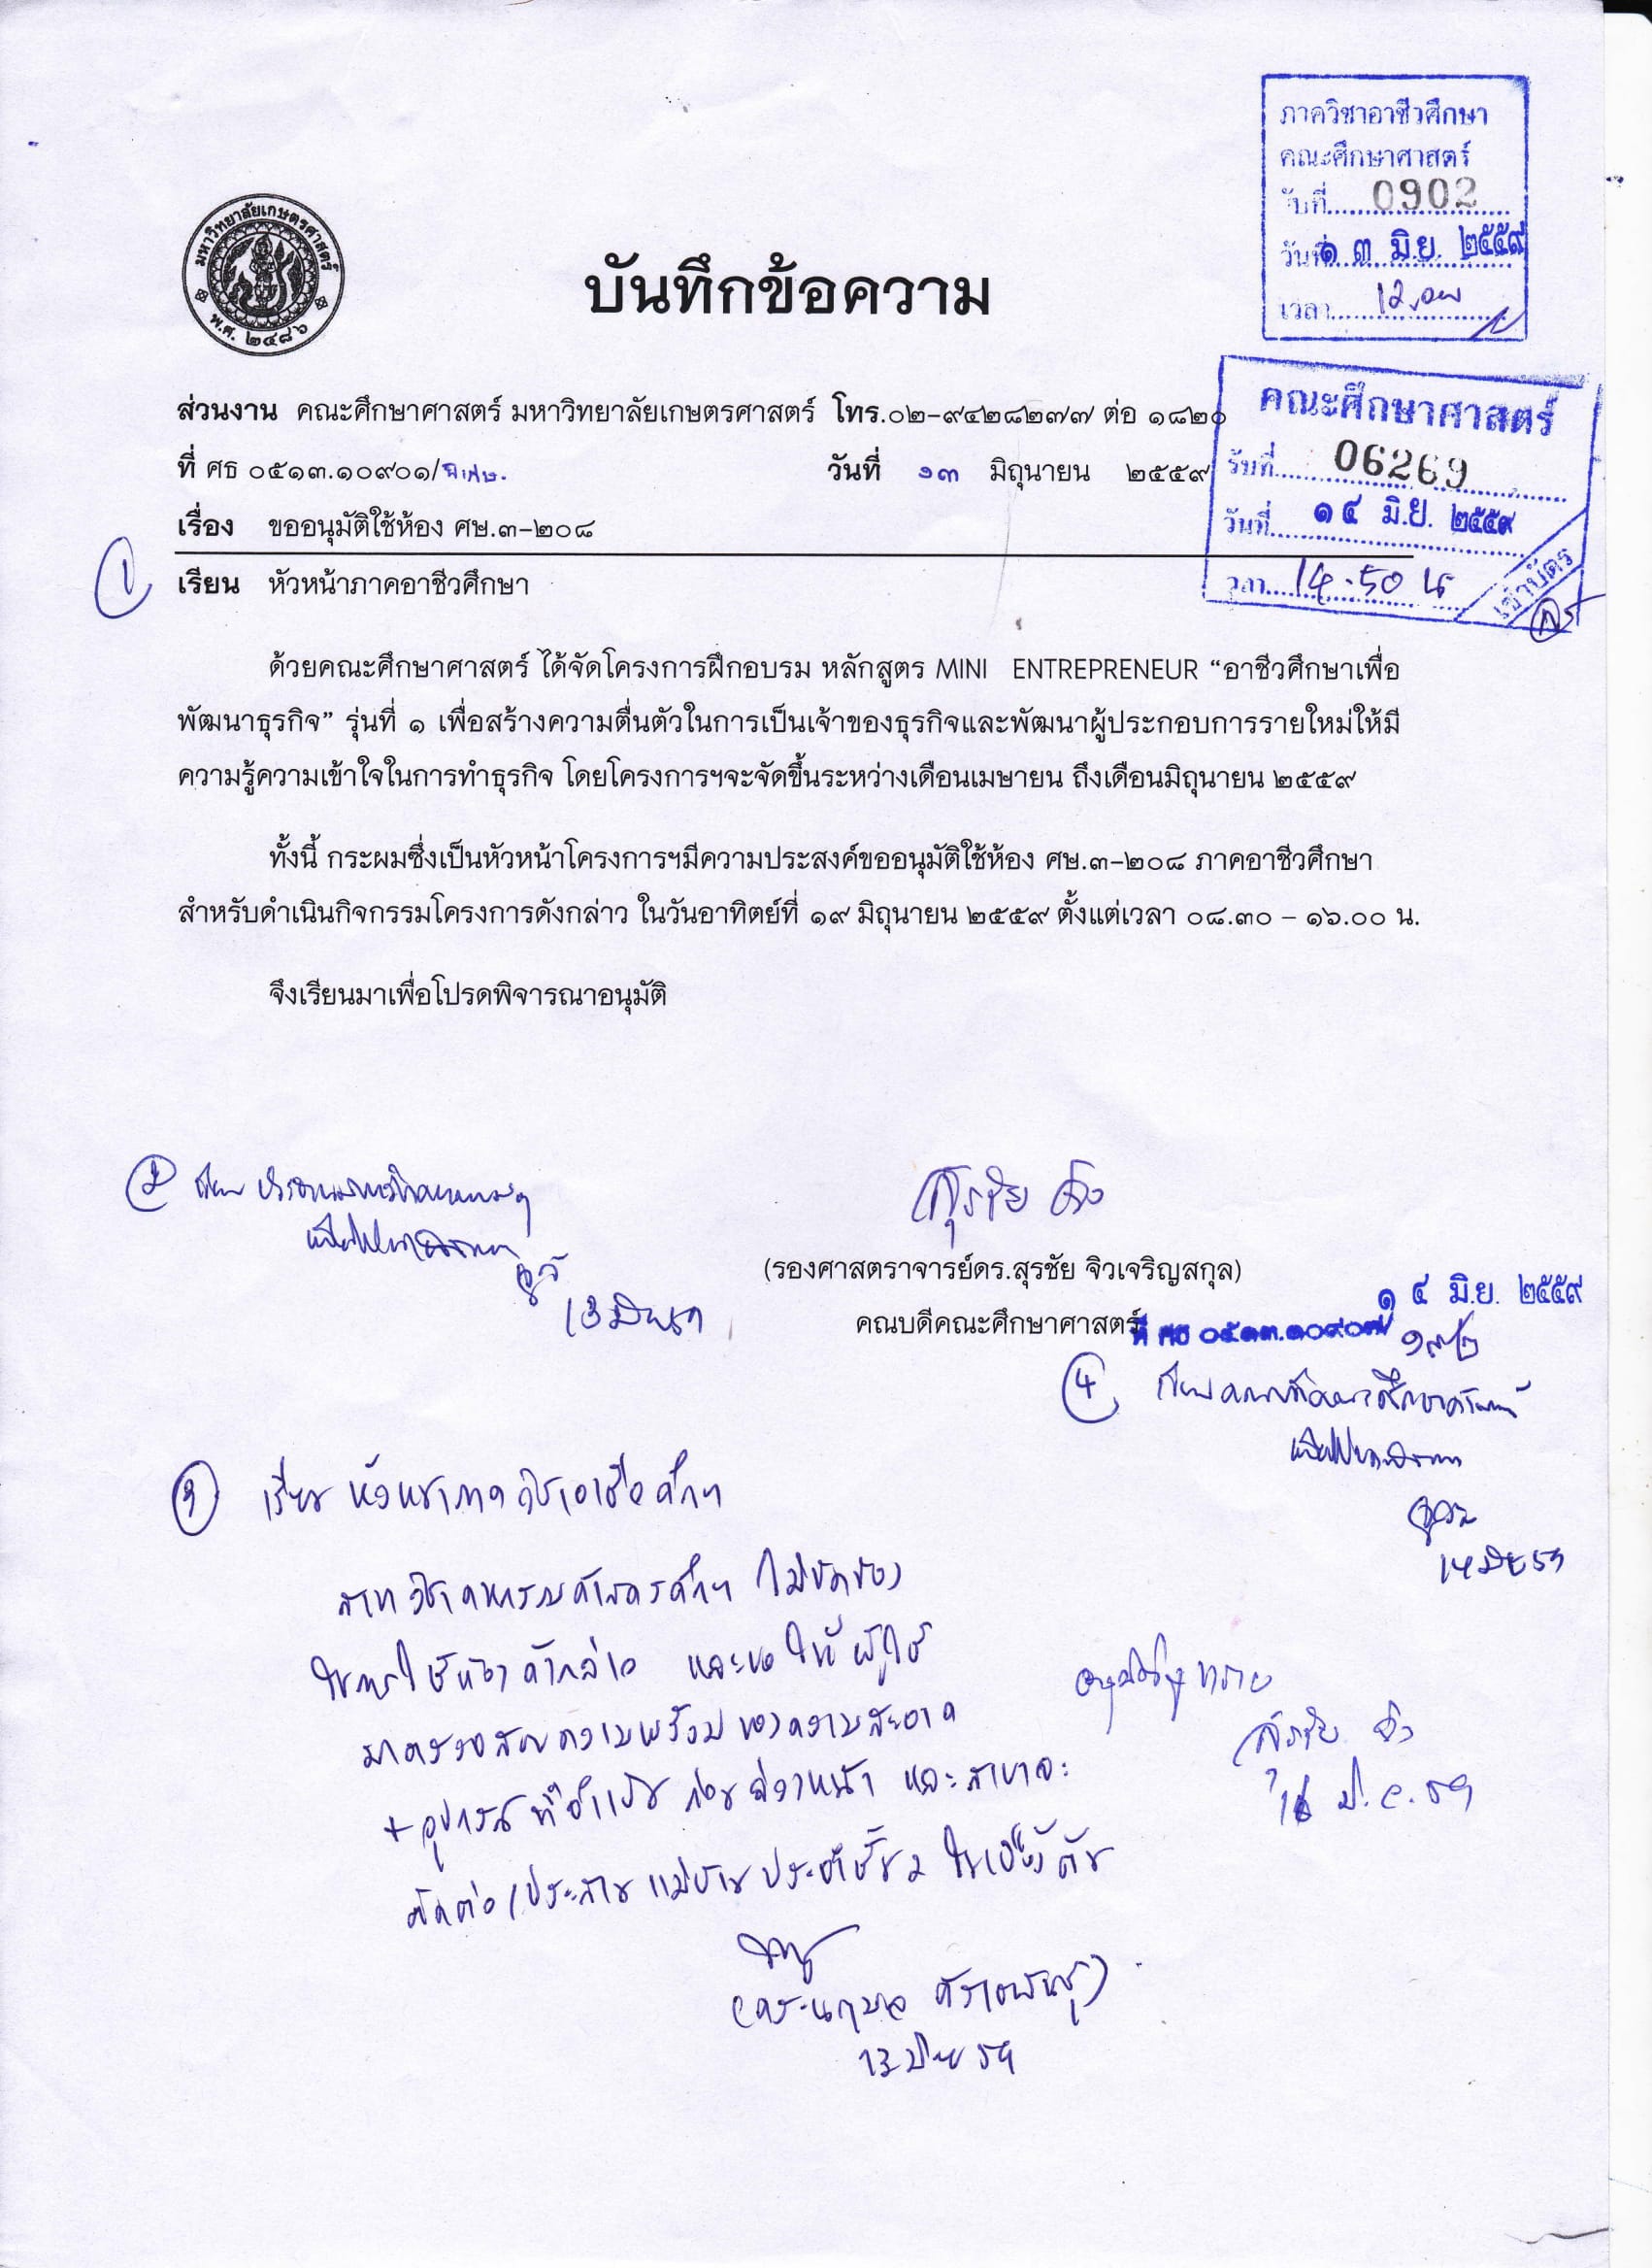 ภาควิชาอาชีวศึกษา
คณะศึกษาศาสตร์
รับที่ 0902
วันที่ ๑ ๓ มิ.ย. ๒๕๕๙
เวลา
มหาวิทยาลัยเกษตรศาสตร์
พ.ศ. ๒๔๘๖
บันทึกข้อความ
คณะศึกษาศาสตร์
รับที่ 06269
วันที่ ๑ ๔ มิ.ย. ๒๕๕๙
เวลา 14.50 น
ส่วนงาน คณะศึกษาศาสตร์ มหาวิทยาลัยเกษตรศาสตร์ โทร.๐๒-๙๔๒๘๒๗๗ ต่อ ๑๘๒๐
ที่ ศธ ๐๕๑๓.๑๐๙๐๑/พิเศษ. วันที่ ๑๓ มิถุนายน ๒๕๕๙
เรื่อง ขออนุมัติใช้ห้อง ศษ.๓-๒๐๘
1 เรียน หัวหน้าภาคอาชีวศึกษา
ด้วยคณะศึกษาศาสตร์ ได้จัดโครงการฝึกอบรม หลักสูตร MINI ENTREPRENEUR “อาชีวศึกษาเพื่อ
พัฒนาธุรกิจ” รุ่นที่ ๑ เพื่อสร้างความตื่นตัวในการเป็นเจ้าของธุรกิจและพัฒนาผู้ประกอบการรายใหม่ให้มี
ความรู้ความเข้าใจในการทำธุรกิจ โดยโครงการฯจะจัดขึ้นระหว่างเดือนเมษายน ถึงเดือนมิถุนายน ๒๕๕๙
ทั้งนี้ กระผมซึ่งเป็นหัวหน้าโครงการฯมีความประสงค์ขออนุมัติใช้ห้อง ศษ.๓-๒๐๘ ภาคอาชีวศึกษา
สำหรับดำเนินกิจกรรมโครงการดังกล่าว ในวันอาทิตย์ที่ ๑๙ มิถุนายน ๒๕๕๙ ตั้งแต่เวลา ๐๘.๓๐ – ๑๖.๐๐ น.
จึงเรียนมาเพื่อโปรดพิจารณาอนุมัติ
2 เรียน
เพื่อโปรดพิจารณา
13 มิย 59
สุรชัย จิว
(รองศาสตราจารย์ดร.สุรชัย จิวเจริญสกุล)
คณบดีคณะศึกษาศาสตร์
๑ ๔ มิ.ย. ๒๕๕๙
ที่ ศธ ๐๕๑๓.๑๐๙๐๗/
4 เรียน คณบดีคณะศึกษาศาสตร์
เพื่อโปรดพิจารณา
14 มิย 59
3 เรียน หัวหน้าภาควิชาอาชีวศึกษา
สาขาวิชาคหกรรมศาสตรศึกษา ไม่ขัดข้อง
ในการใช้ห้องดังกล่าว และขอให้ผู้ใช้
มาตรวจสอบความพร้อมของความสะอาด
+ อุปกรณ์ที่จำเป็น ก่อนล่วงหน้า และสามารถ
ติดต่อ/ประสานแม่บ้านประจำชั้น 2 ในเบื้องต้น
13 มิย 59
สุรชัย จิว